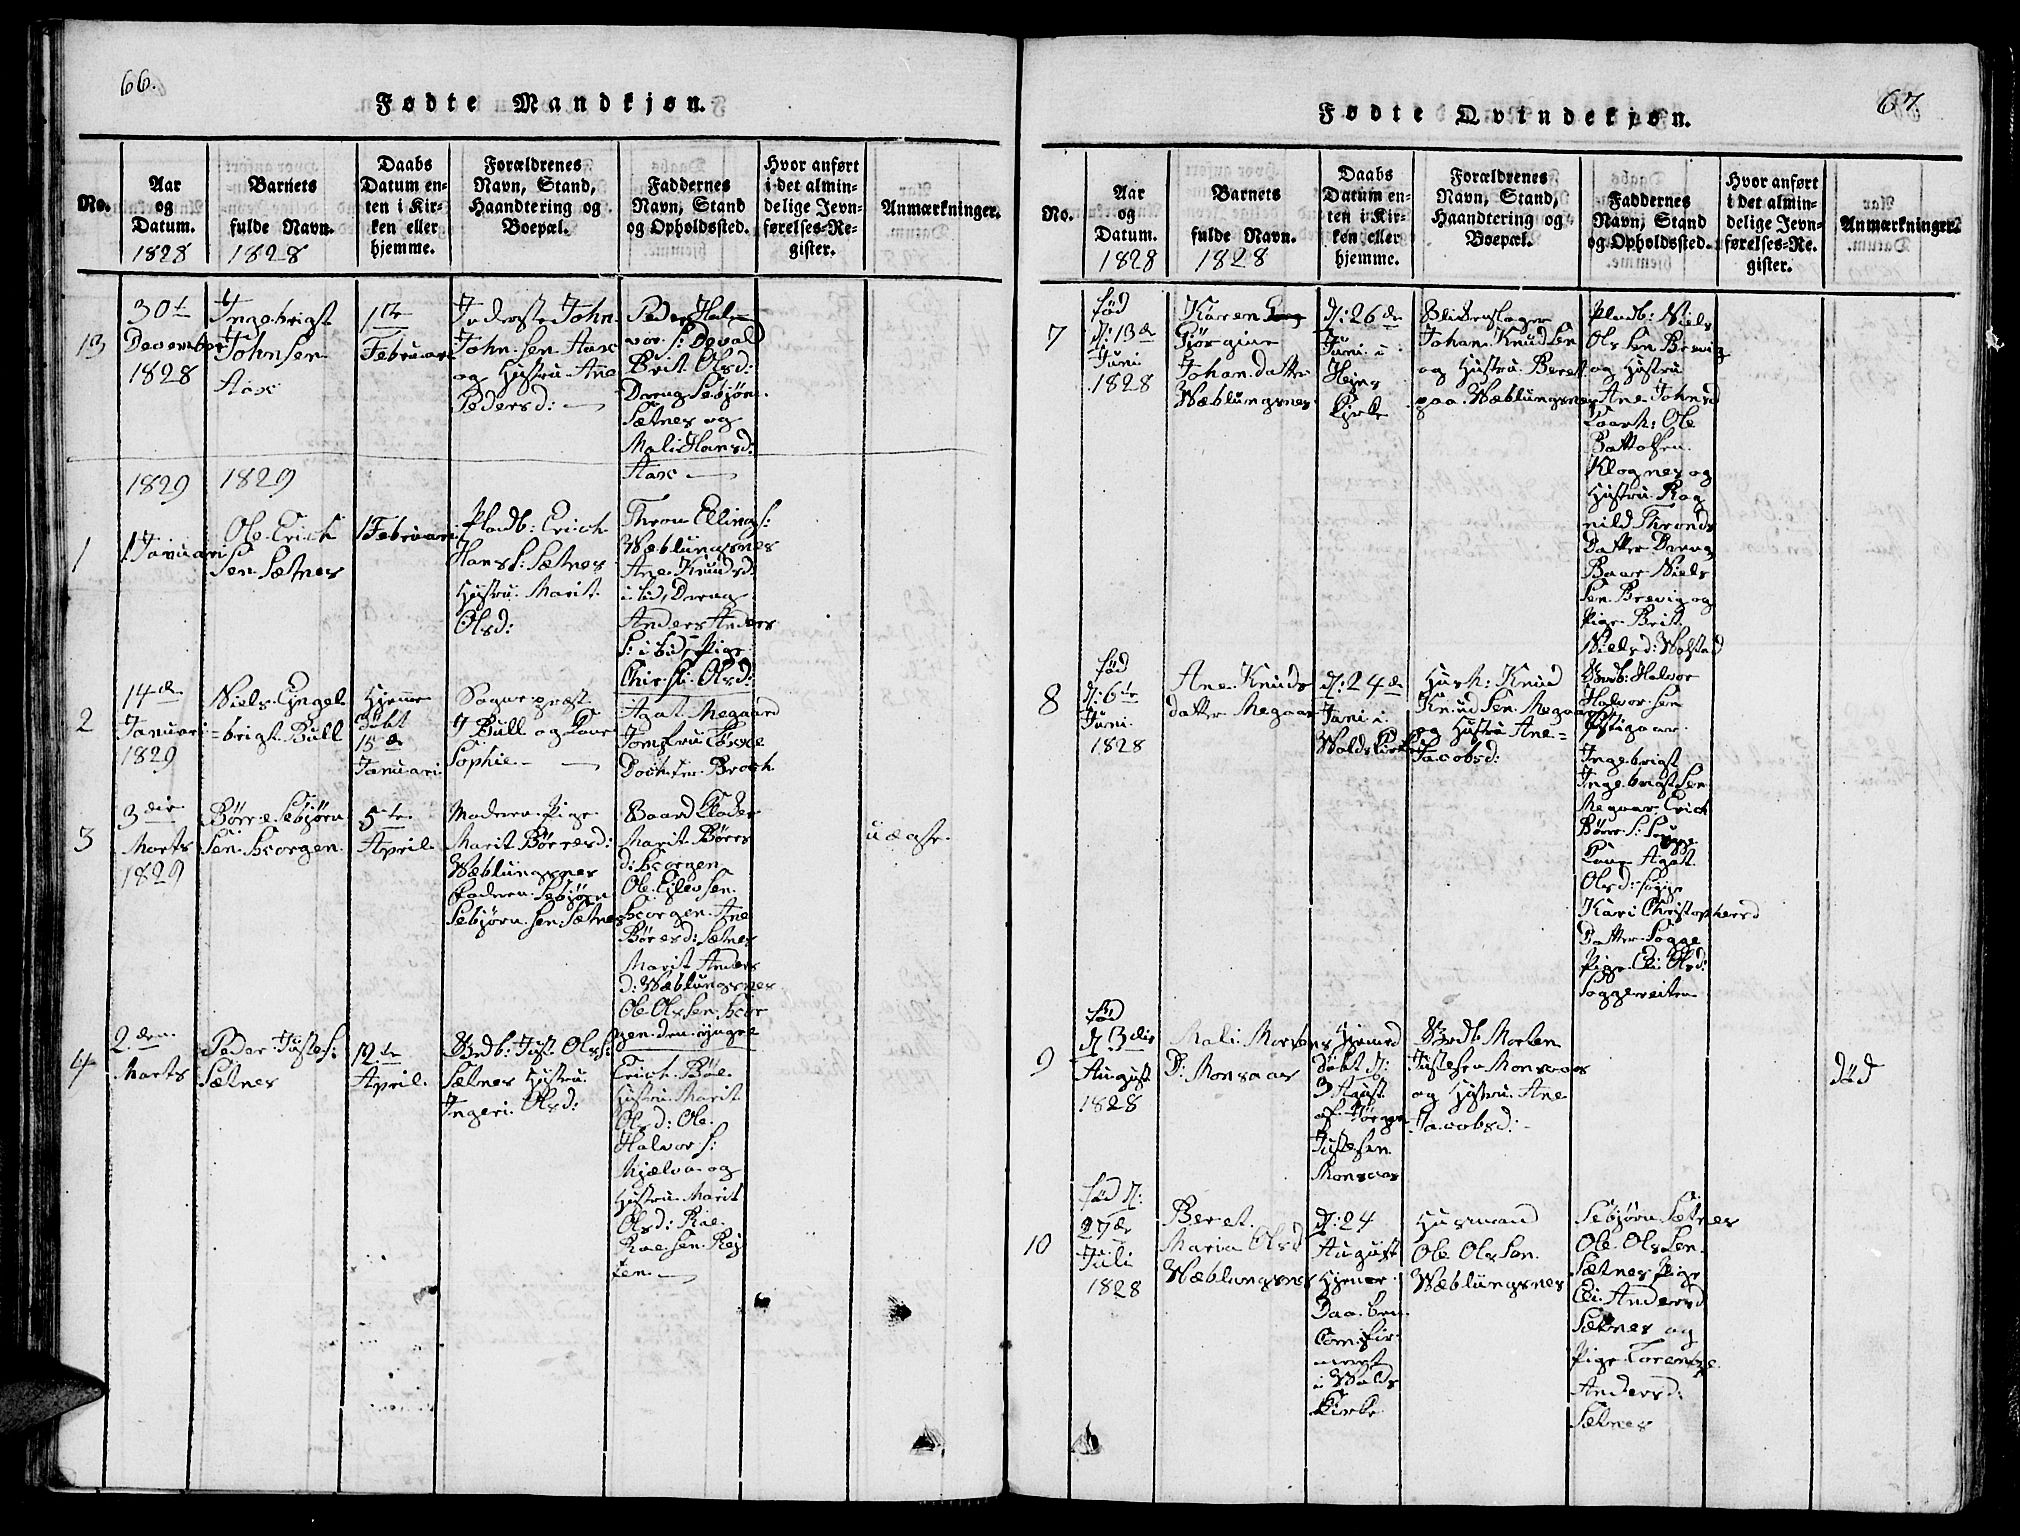 66.
Fødte Mandkjøn.
No.
Aar
og
Datum.
1828
Barnets
fulde Navn.
1828
Daabs
Datum en-
ten i Kir-
ken eller
hjemme.
Forældrenes
Navn, Stand,
Haandtering og
Boepæl.
Faddernes
Navn, Stand
og Opholdssted.
Hvor anført
i det almin-
delige Jevn-
førelses-Re-
gister.
Anmærkninger.
13
30te
December
1828
Ingebrigt
Johnsen
Aax
1te
Februari
Inderste John
Johnsen Aax
og Hustru Ane
Pedersd:
Peder Hal-
vor S: Devold
Brit Olsd:
Dreng Sebjøn
Sætnes og
Mali Hansd:
Aax
1829
1829
1
1 Januari
Ole Erich
Sen Sætnes
1 Februari
Pladb: Erich
Hans S: Sætnes
Hustru Marit
Olsd:
Thron Ellings:
Wæblungsnes
Ane Knudsd:
ibid, Dreng
Anders Anders
S: ibid, Pige
Chirsti Olsd:
2
14de
Januari
1829
Niels Engel
=brigt Bull
Hjeme
døbt
15de
Januari
Sogneprest
J Bull og Kone
Sophie
Agat Megaard
Jomfru
Dochter Broch
3
3die
Marts
1829
Børre Sebjørn
Sen Skorgen
5te
April
Moderen Pige
Marit Børresd:
Wæblungsnes
Faderen Sebjørn
Sebjørn Sen Sætnes
Baard Klader
Marit Børres
d: Skorgen
Ole Eilevsen
Skorgen Ane
Børesd: Sætnes
Marit Anders
d: Wæblungsnes
Ole Olssen Skor
gen den yngre
uægte
4
2den
Marts
Peder Justes:
Sætnes
12te
April
Brdb: Just Ols S:
Sætnes Hustru
Ingeri Olsd:
Erich Bøe
Hustru Marit
Olsd: Ole
Halvor S:
Mjælva og
Hustru Marit
Olsd: Roe
Roe Sen Rej-
ten
67.
Fødte Qvindekjøn.
No.
Aar
og
Datum.
1828
Barnets
fulde Navn.
1828
Daabs
Datum en-
ten i Kir-
ken eller
hjemme.
Forældrenes
Navn, Stand,
Haandtering og
Boepæl.
Faddernes
Navn, Stand
og Opholdssted.
Hvor anført
i det almin-
delige Jevn-
førelses-Re-
gister.
Anmærkninger.
7
fød
d: 13de
Juni
1828
Karen
Giørgine
Johan datter
Wæblungsnes
d: 26de
Juni i
Hens
Kirke
Blikenslager
Johan Knudsen
og Hustru Beret
paa Wæblungsnes
Pladb: Niels
Olssen Brevig
og Hustru
Ane Johnsd
Kaarh: Ole
Battolfsen
Klognes og
Hustru Rag
nild Thronds
Datter Dreng
Baar Niels
Sen Brevig og
Pige Brit
Nielsd: Wolstad
8
fød
d: 6te
Juni
1828
Ane Knuds
datter Megaar
d: 24de
Juni i
Wolds Kirke
Hush: Knud
Knudsen Megaar
og Hustru Ane
Jacobsd:
Brdb: Halvor
Halvor Sen
Ingebrigt
Ingebrigt Sen
Megaar Erich
Børre S: Sogge
Kone Agot
Olsd: Sogge
Kari Christopherd
Datter Sogge
Pige Eli Olsd:
Soggereiten
9
fød
d 3die
August
1828
Mali Mortens
D: Monsaas
Hjemed
døbt d:
3 Agust
af Jørgen
Justesen
Monsaas
Brdb Morten
Justesen Monsaas
og Hustru Ane
Jacobsd:
død
10
fød d:
27de
Juli
1828
Beret
Maria Olsd
Wæblungsnes
d: 24
August
Hjeme
Daaben
Comfir-
meret
i Wolds
Kirke
Husmand
Ole Olsson
Wæblungsnes
Sebjørn Sætnes
Ole Ols Sen
Sætnes Pige
Eli Andersd
Sætnes og
Pige Lorentze
Andersd:
Sætnes